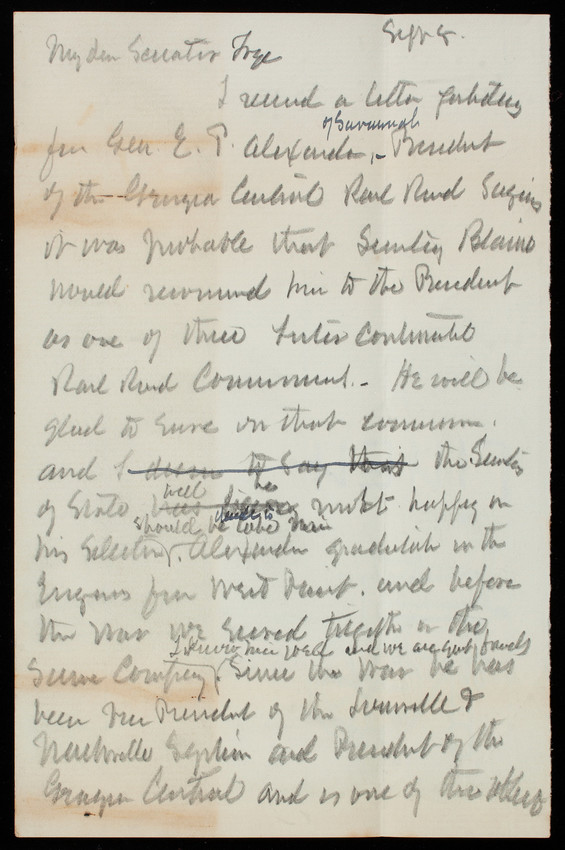 Sept 8.
My dear Senator Frye
I received a letter yesterday
of Savannah
from Gen. E. P. Alexander, - President
of the Georgia Central Rail Road Saying
it was probable that Secretary Blaine
would recommend him to the President
as one of three Inter Continental
Rail Road Commissioners. - He will be
glad to serve on that commission.
and I desire to say that the Secretary
of State will be most happy in
should he take him
his selection. Alexander graduated in the
Engineers from West Point. and before
the war we served together in the
I know him well and we are good friends
same Company. Since the war he has
been Vice President of the Louisville &
Nashville System and President of the
Georgia Central and is one of the